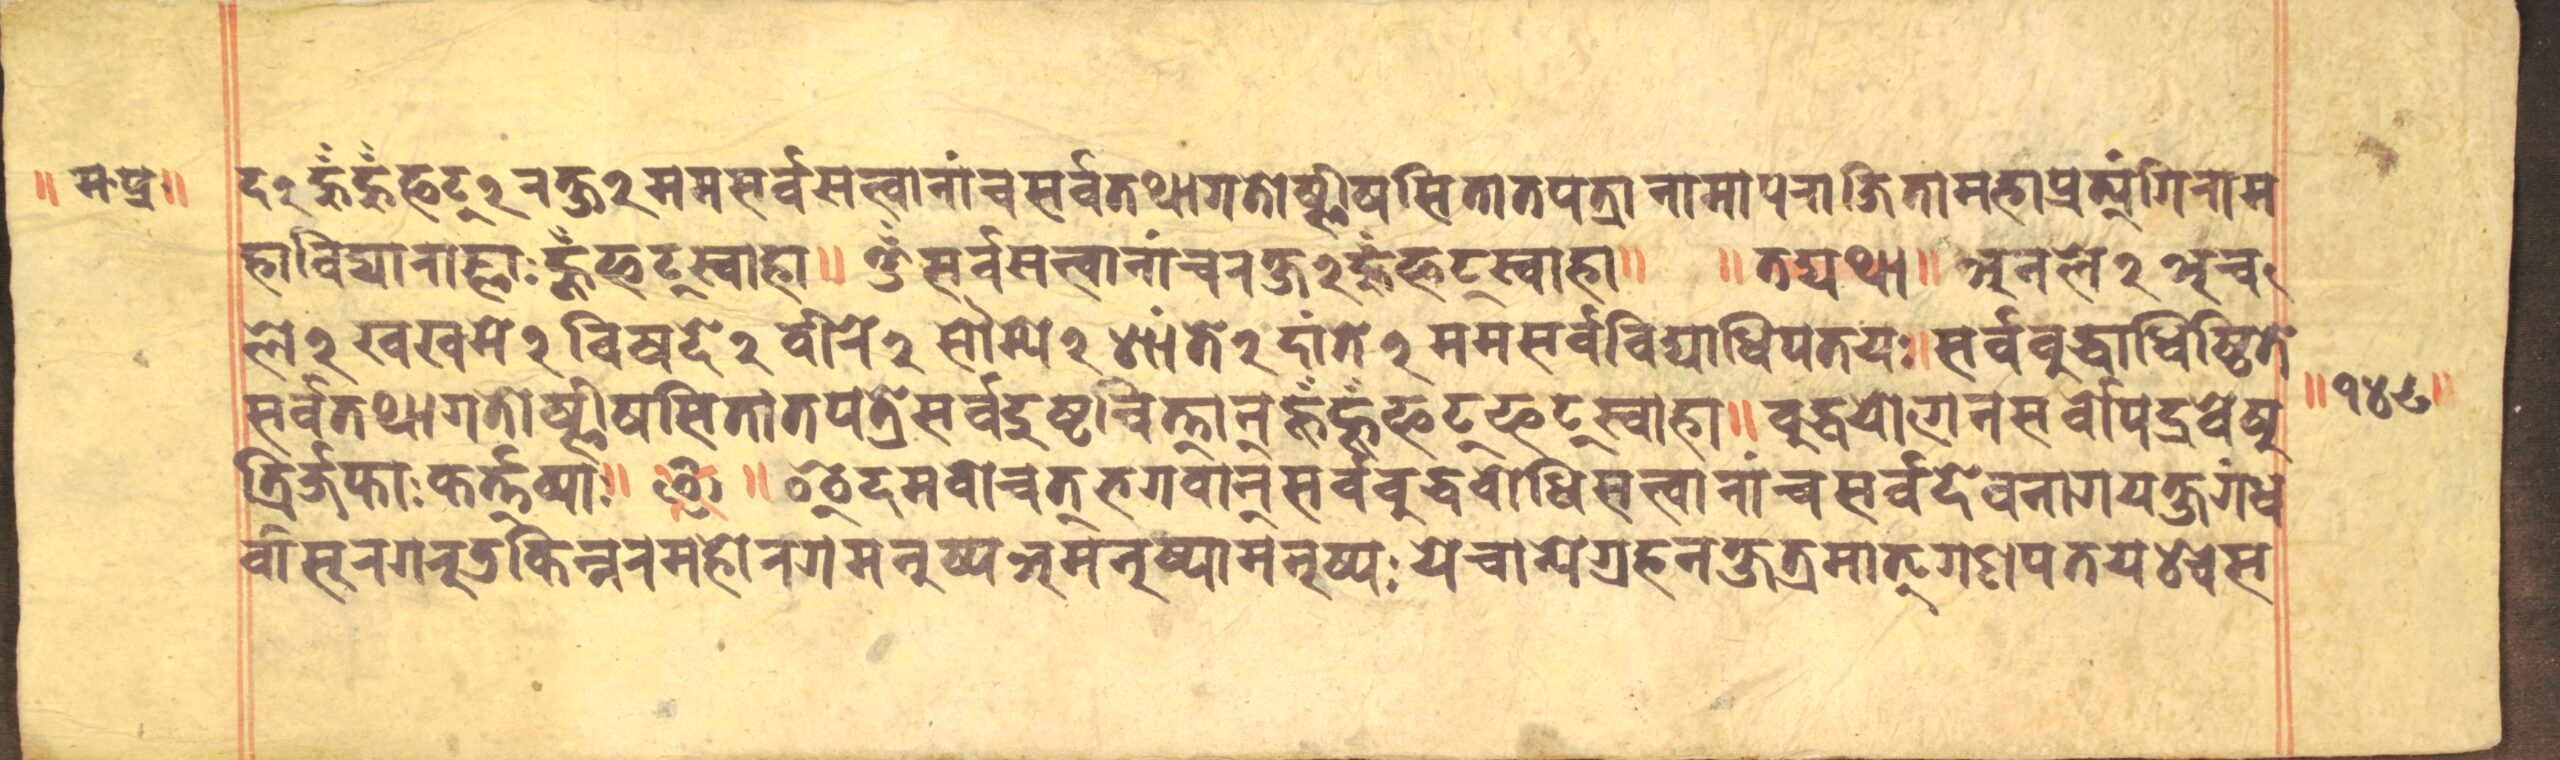 ॥ मप्र ॥
द२हूँहूँफट्२नक्ष२ममसर्वसत्त्वानांचसर्वतथागतोष्णीषसितातपत्रानामापनाजितामहाप्रत्यंगिनाम
हाविद्यानाज्ञाःहूँफट्स्वाहा॥ ॐसर्वसत्त्वानांचनक्ष२हूँफट्स्वाहा॥ ॥तद्यथा॥ अनले२ अच
ले२ खखमे२ विषदे२ वीने२ सौम्ये२ शांते२ दांते२ ममसर्वविद्याधिपतयः॥सर्वबुद्धाधिष्ठिते
सर्वतथागतोष्णीषसितातपत्रेसर्वदुष्टचित्तान्हूँहूँफट्फट्स्वाहा॥बुद्धयोगेनसर्वोपद्रवेषु
॥१४५॥
त्रिर्जफाःकर्त्तव्याः॥ ॥ इदमवोचत्भगवान्सर्वबुद्धबोधिसत्त्वानांचसर्वदेवनागयक्षगंध
र्वासुनगनुडकिन्ननमहोनगमनुष्यअमनुष्यामनुष्यः येचान्येग्रहनक्षत्रमातृगणपतयश्चेस